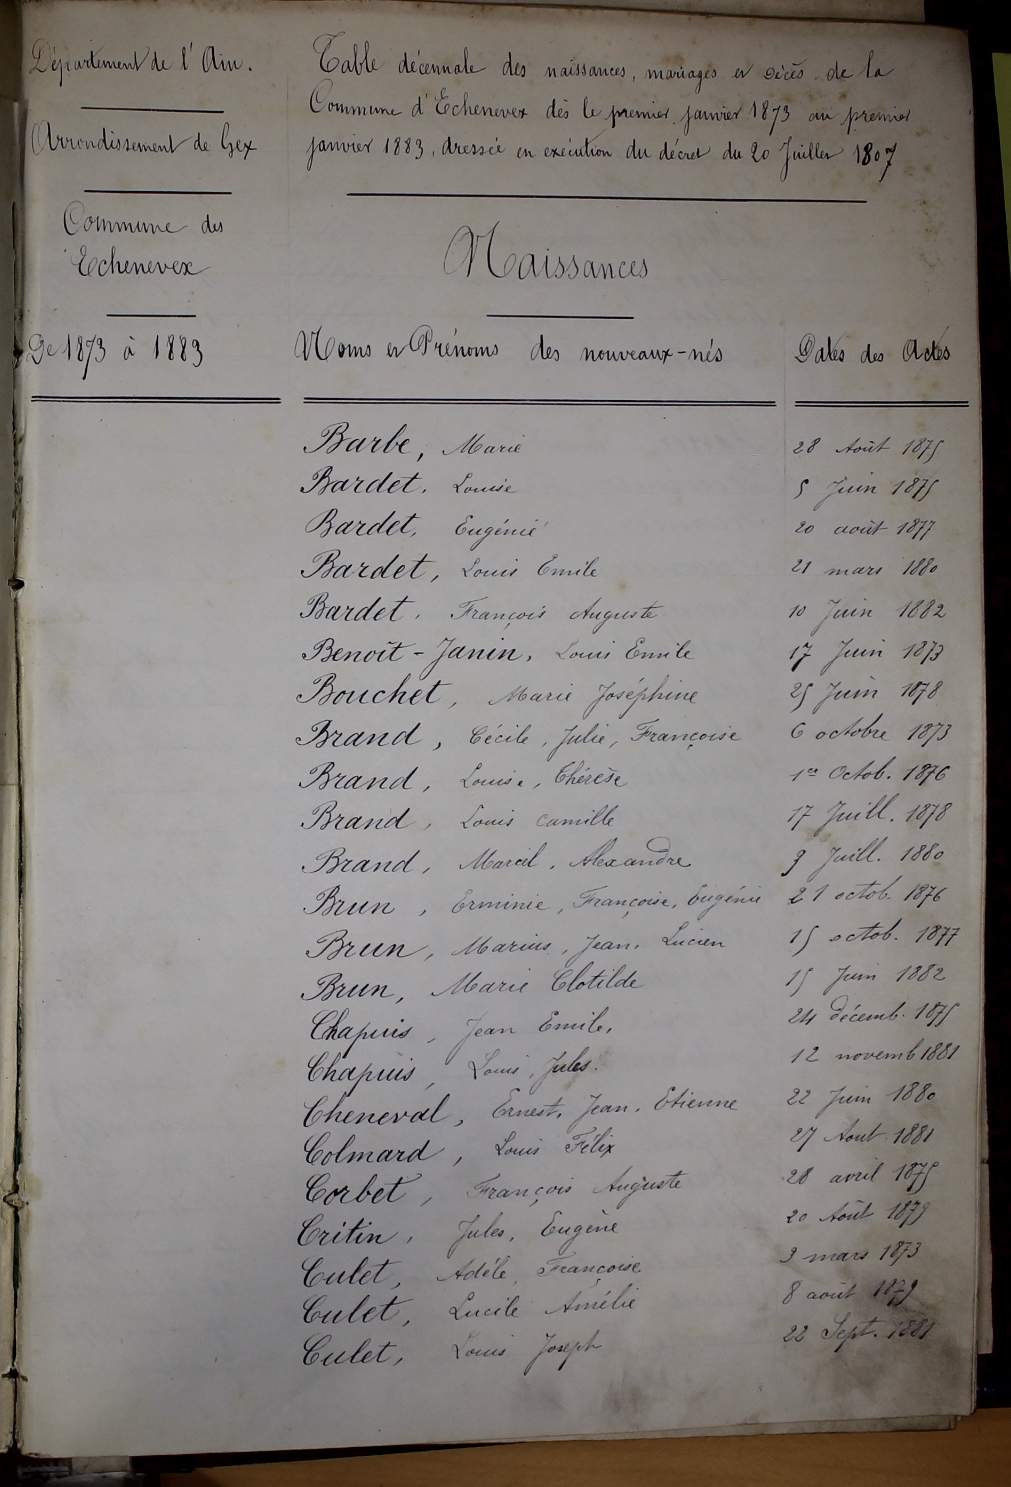 Département de l'Ain.
Arrondissement de Gex
Commune des
Echenevex
De 1873 à 1883
Table décennale des naissances, mariages et décès de la
Commune d'Echenevex dès le premier janvier 1873 au premier
janvier 1883, dressée en exécution du décret du 20 Juillet 1807
Naissances
Noms et Prénoms des nouveaux-nés Dates des Actes
Barbe, Marie 28 Août 1875
Bardet, Louise 5 Juin 1875
Bardet, Eugénie 20 août 1877
Bardet, Louis Emile 21 mars 1880
Bardet, François Auguste 10 Juin 1882
Benoît-Janin, Louis Emile 17 Juin 1873
Bouchet, Marie Joséphine 25 Juin 1878
Brand, Cécile, Julie, Françoise 6 octobre 1873
Brand, Louise, Thérèse 1er Octob. 1876
Brand, Louis camille 17 Juill. 1878
Brand, Marcil, Alexandre 9 Juill. 1880
Brun, Erminie, Françoise, Eugénie 21 octob. 1876
Brun, Marius, Jean, Lucien 15 octob. 1877
Brun, Marie Clotilde 15 Juin 1882
Chapuis, Jean Emile, 24 décemb. 1875
Chapuis, Louis, Jules. 12 novemb 1881
Cheneval, Ernest, Jean, Etienne 22 Juin 1880
Colmard, Louis Félix 27 Aout 1881
Corbet, François Auguste 28 avril 1875
Critin, Jules, Eugène 20 Août 1879
Culet, Adèle, Francoise 3 mars 1873
Culet, Lucile Amélie 8 août 1879
Culet, Louis Joseph 22 Sept. 1881